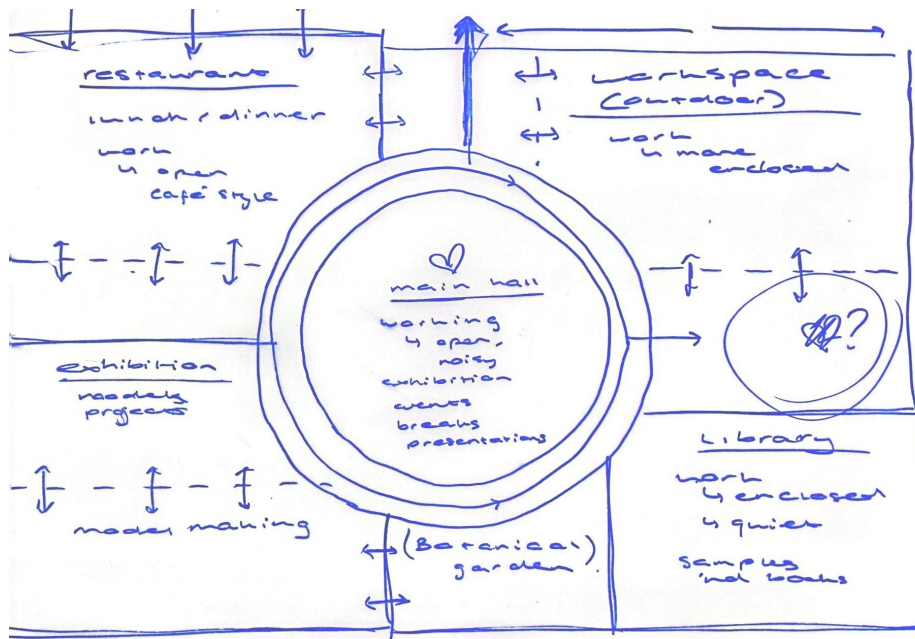 restaurant
lunch / dinner
work
↳ open
café style
workspace
(outdoor)
work
↳ more
enclosed
main hall
working
↳ open,
noisy
exhibition
events
breaks
presentations
?
exhibition
models
projects
model making
(Botanical)
garden
Library
work
↳ enclosed
↳ quiet
samples
'nd books